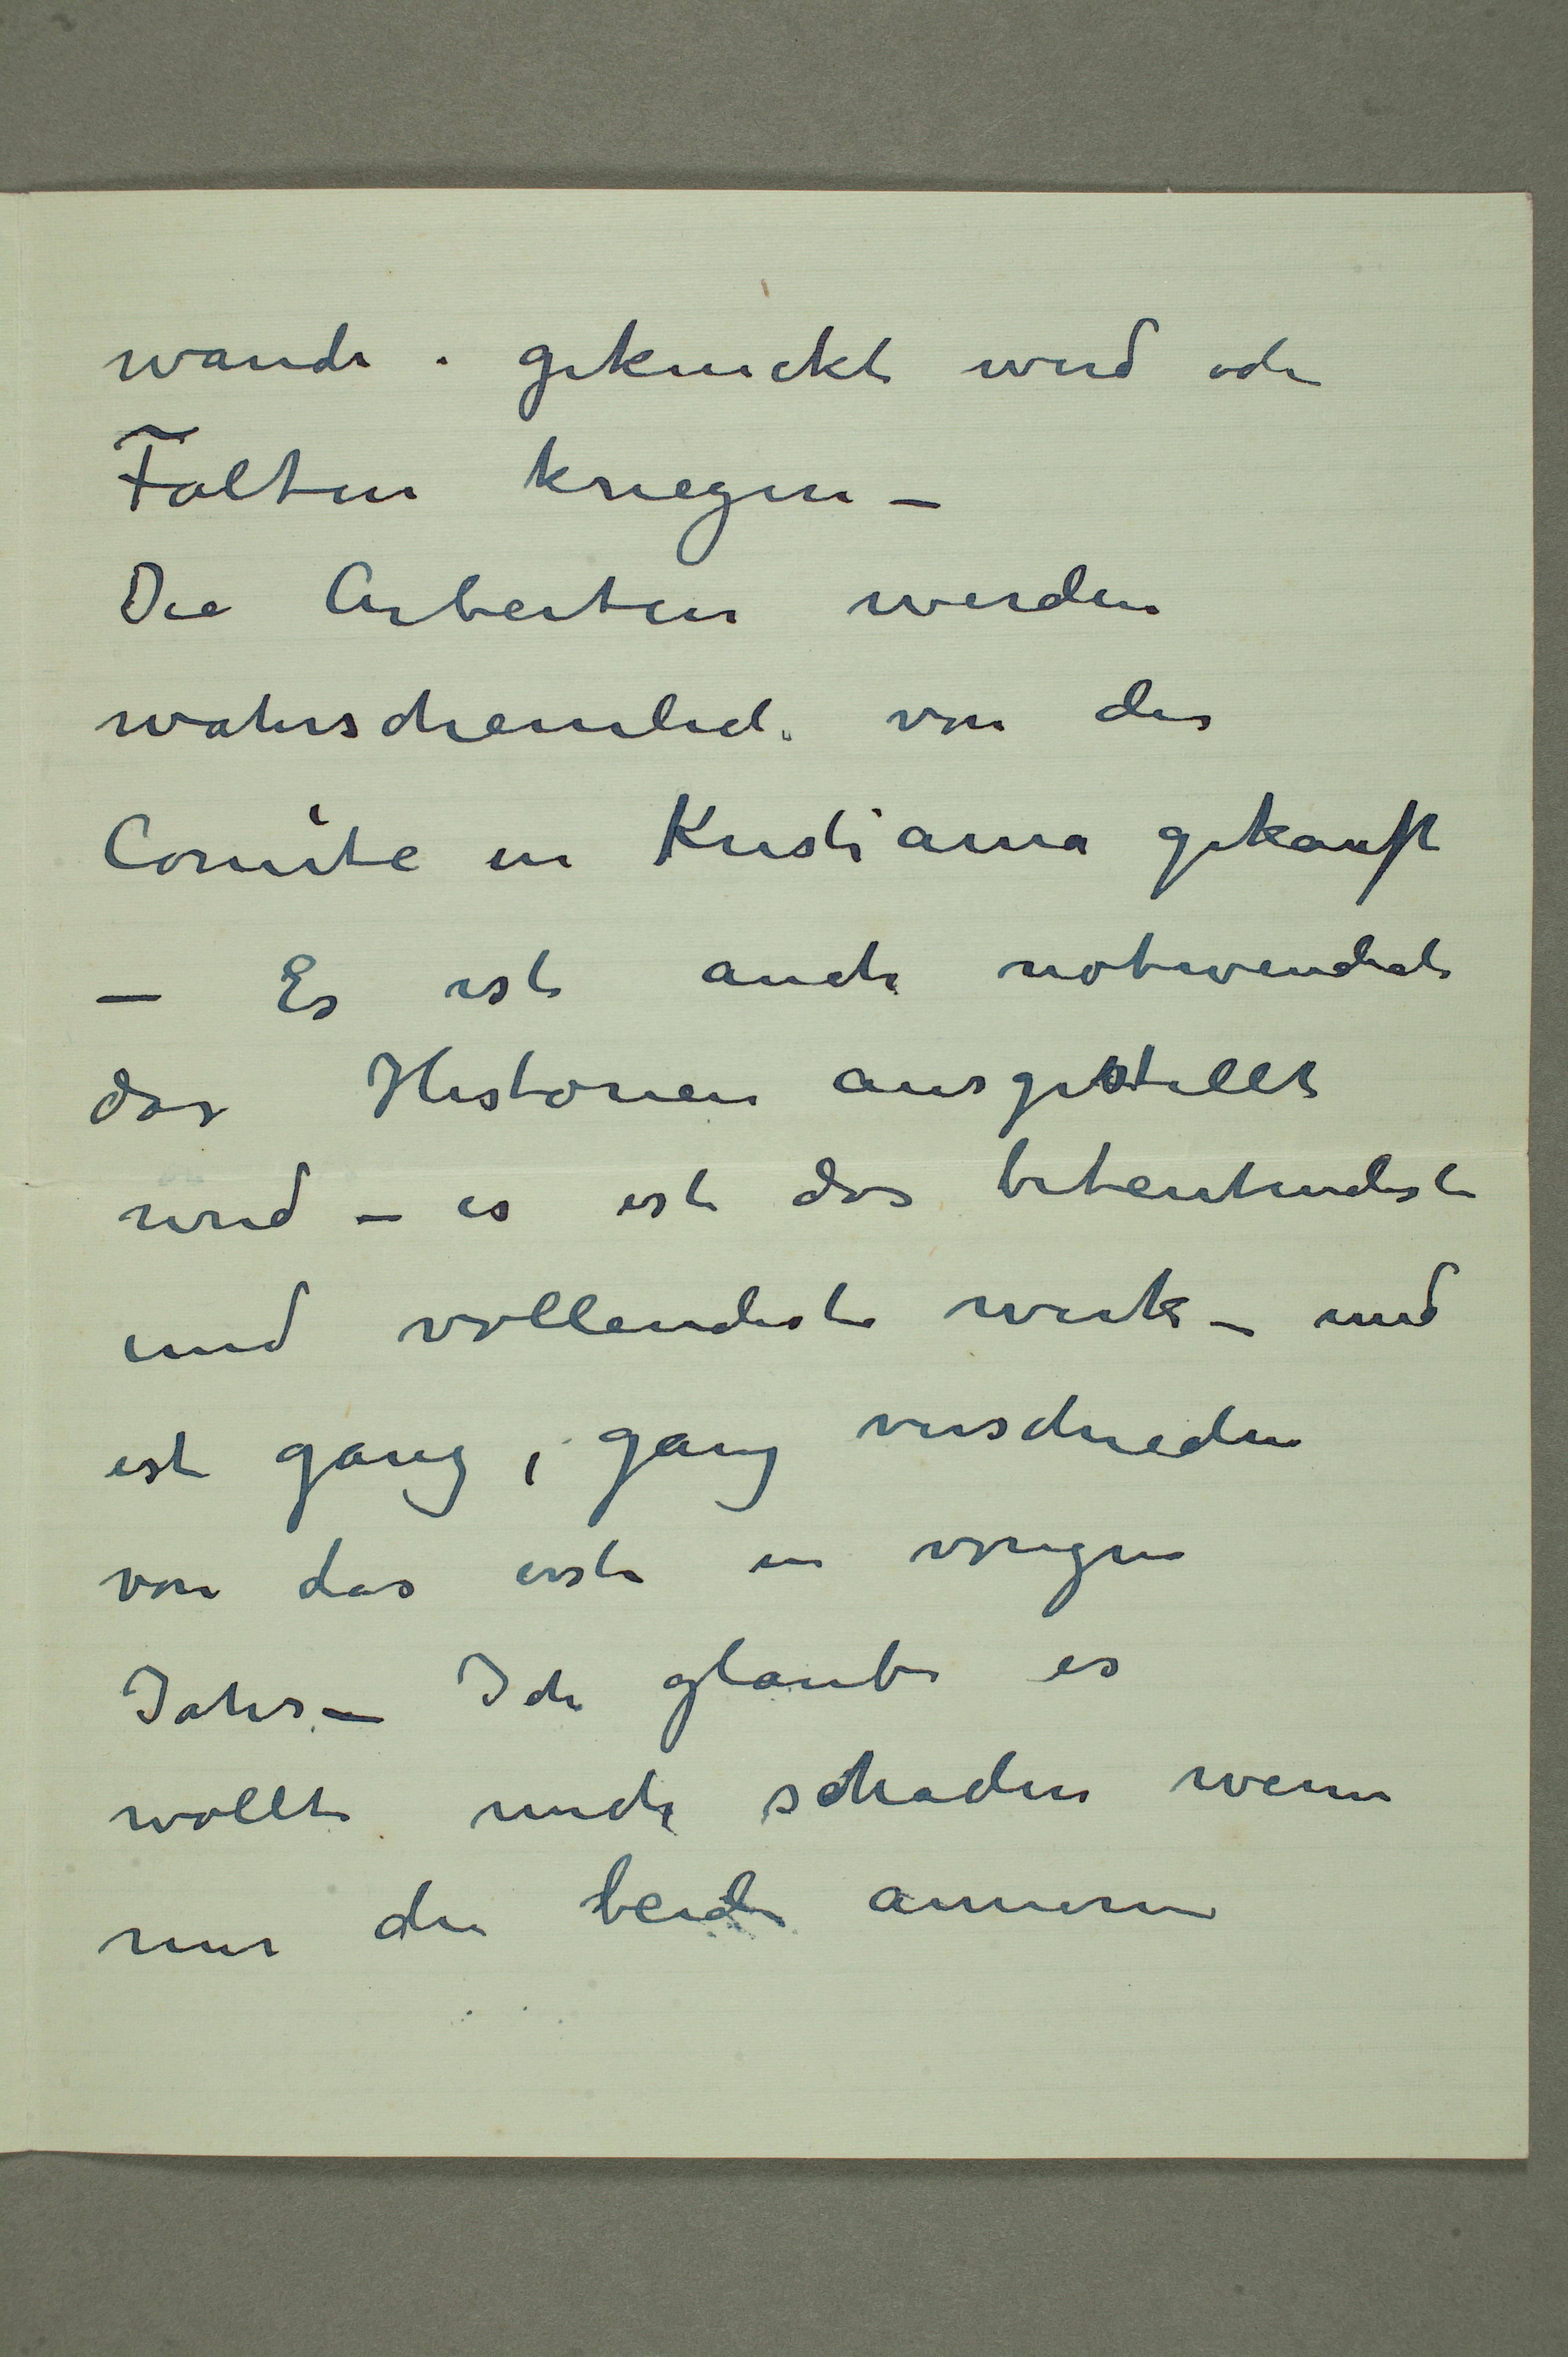 wande . geknickt wird oder
Falten kriegen –
Die Arbeiten werden
wahrscheinlich von der
Comite in Kristiania gekauft
– Es ist auch notwendich
das Historien ausgestellt
wird – es ist das beteutendste
und vollendeste werk – und
ist ganz, ganz verschieden
von das erste in vorigen
Jahr – Ich glaube es
wollte nicht schaden wenn
nur die beide anneren